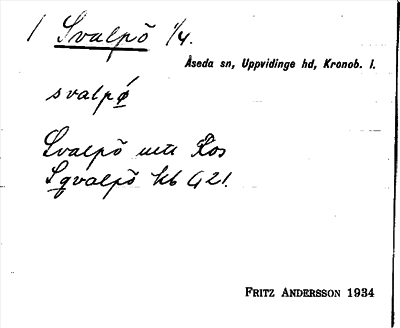 1 Svalpö 1/4.
Åseda sn, Uppvidinge hd, Kronob. l.
svalpǿ
Svalpö
Sqvalpö kb G 21.
FRITZ ANDERSSON 1934